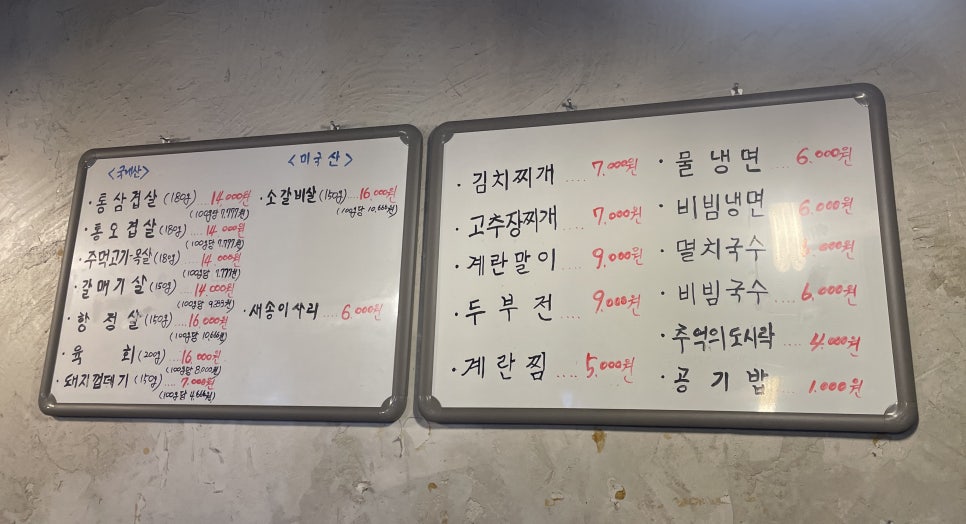 <국내산>
· 통삼겹살 (180g) .... 14.000원
(100g당 7.777원)
· 통오겹살 (180g) .... 14.000원
(100g당 7.777원)
· 주먹고기·목살 (180g) ... 14.000원
(100g당 7.777원)
· 갈매기살 (150g) .... 14.000원
(100g당 9.333원)
· 항정살 (150g) .... 16.000원
(100g당 10,666원)
· 육회 (200g) .... 16.000원
(100g당 8,000원)
· 돼지껍데기 (150g) ... 7.000원
(100g당 4,666원)
<미국산>
· 소갈비살 (150g) .... 16.000원
(100g당 10,666원)
· 새송이사리 .... 6.000원
· 김치찌개 .... 7.000원
· 고추장찌개 .... 7.000원
· 계란말이 .... 9.000원
· 두부전 .... 9.000원
· 계란찜 .... 5.000원
· 물냉면 .... 6.000원
· 비빔냉면 .... 6.000원
· 멸치국수 ....000원
· 비빔국수 .... 6.000원
· 추억의도시락 .... 4.000원
· 공기밥 .... 1.000원